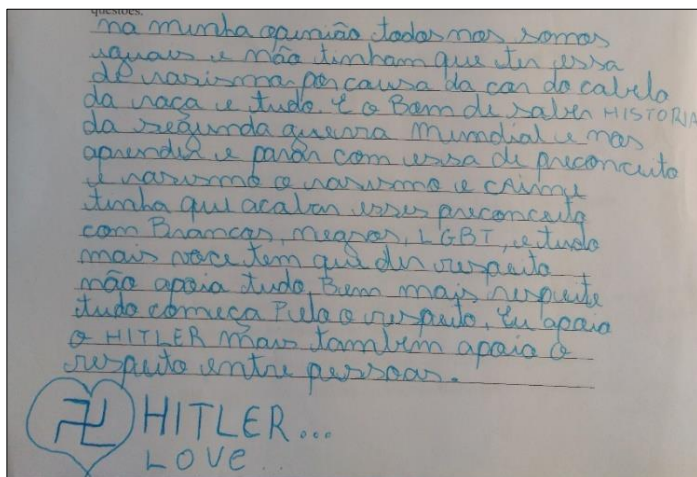 questões.
na minha opinião todos nos somos
iguais e não tinham que ter essa
de rasismo por causa da cor do cabelo
da raça e tudo. E o Bom de saber HISTORIA
da segunda guerra mundial e nos
aprender e parar com essa de preconceito
e rasismo o rasismo e crime
tinha que acabar esses preconceito
com Brancos, negros, LGBT, e tudo
mais voce tem que der respeito
não apoia tudo Bem mais respeite
tudo começa Pelo o respeito, Eu apoio
o HITLER mais tambem apoio o
respeito entre pessoas.
HITLER...
LOVE..